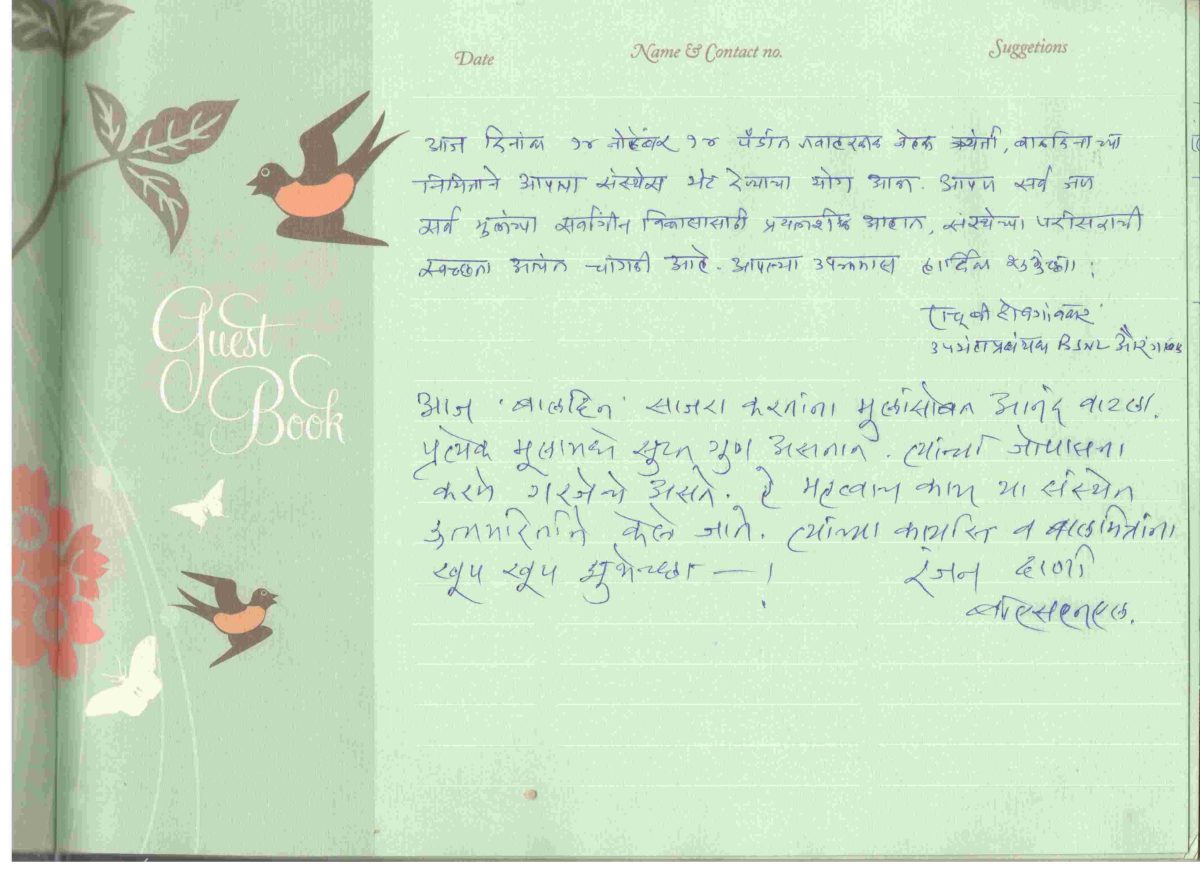 Date Name & Contact no. Suggetions
आज दिनांक १४ नोव्हेंबर १४ पंडीत जवाहरलाल नेहरू जयंती, बालदिनाच्या
निमित्ताने आपल्या संस्थेस भेट देण्याचा योग आला. आपण सर्व जण
सर्व मुलांच्या सर्वांगीन विकासासाठी प्रयत्नशील आहात, संस्थेच्या परीसराची
स्वच्छता अत्यंत चांगली आहे. आपल्या उपक्रमास हार्दिक शुभेच्छा।
उपमहाप्रबंधक BSNL औरंगाबाद
Guest
Book
आज 'बालदिन' साजरा करतांना मुलांसोबत आनंद वाटला.
प्रत्येक मूलामध्ये सुप्त गुण असतात. त्यांची जोपासना
करणे गरजेचे असते. हे महत्वाचे काम या संस्थेत
उत्तमरितीने केले जाते. त्यांच्या कार्यास व बालमित्रांना
खूप खूप शुभेच्छा —!
रंजन दाणी
बीएसएनएल.